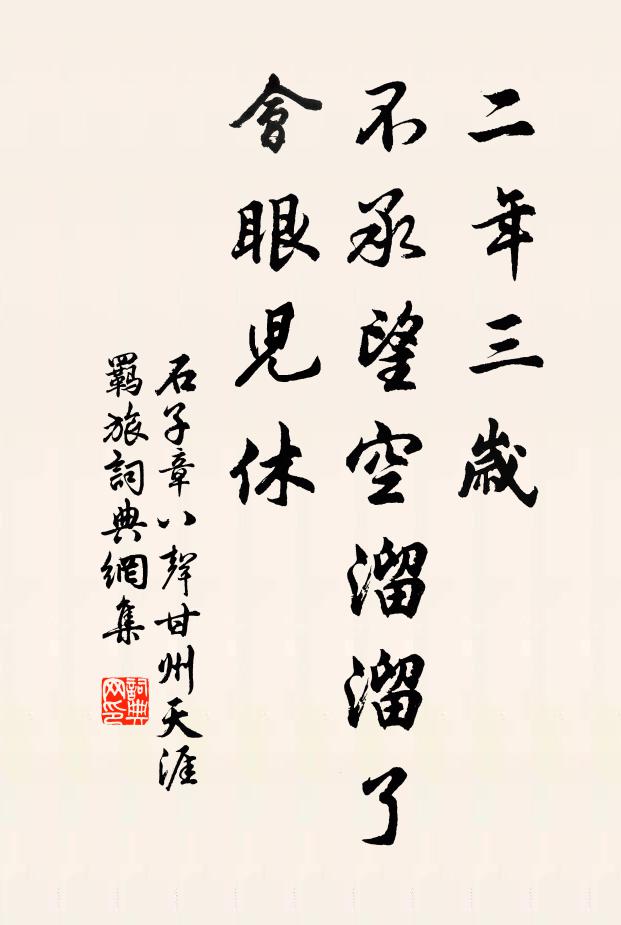 二年三歲
不承望空溜溜了
會眼兒休
石子章八聲甘州天涯
羈旅詞典網集
詞典
网印